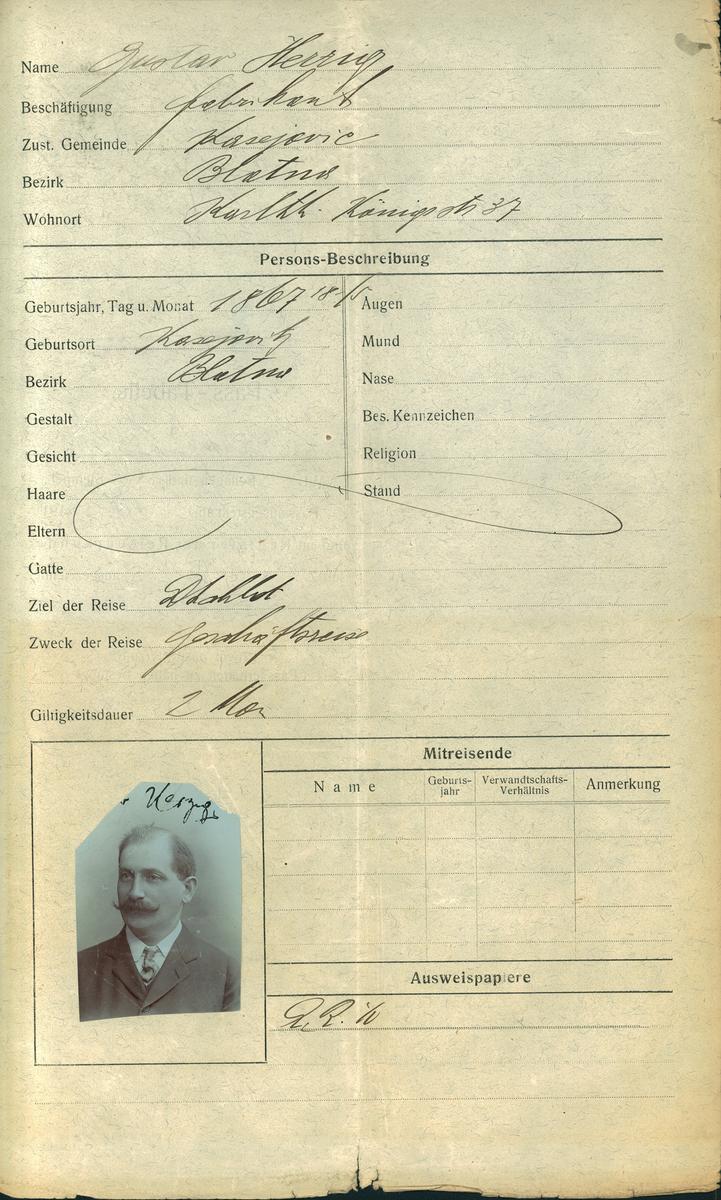 Name Gustav Herzig
Beschäftigung Fabrikant
Zust. Gemeinde Kasejovic
Bezirk Blatna
Wohnort Karlth. Königsstr 37
Persons-Beschreibung
Geburtsjahr, Tag u. Monat 1867 18/5
Augen
Geburtsort Kasejovitz
Mund
Bezirk Blatna
Nase
Gestalt
Bes. Kennzeichen
Gesicht
Religion
Haare
Stand
Eltern
Gatte
Ziel der Reise Dtschlt
Zweck der Reise Geschäftsreise
Giltigkeitsdauer 2 Mon
Mitreisende
Name Geburts-jahr Verwandtschafts-Verhältnis Anmerkung
Herzig
Ausweispapiere